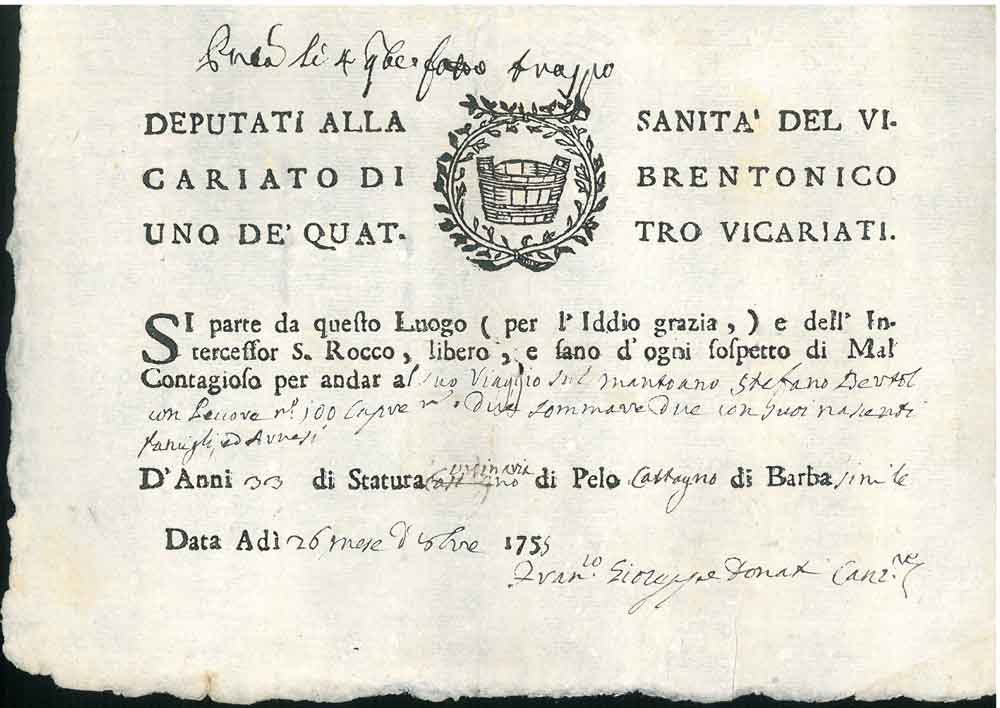 li 4
DEPUTATI ALLA SANITA' DEL VI-
CARIATO DI BRENTONICO
UNO DE' QUAT- TRO VICARIATI.
SI parte da queſto Luogo ( per l'Iddio grazia, ) e dell' In-
terceſſor S. Rocco, libero, e ſano d'ogni ſoſpetto di Mal
Contagioſo per andar al suo Viaggio sul mantoano Stefano Bertol
con Pecore n.º 100 Capre n.º due sommare due con suoi nascenti
famigli, ed Arnesi
D'Anni 33 di Statura ordinaria di Pelo Castagno di Barba simile
Data Adì 26 mese d 1755
Fran.co Gioseppe Donati Canz.re